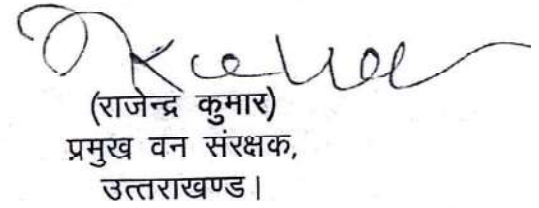 (राजेन्द्र कुमार)
प्रमुख वन संरक्षक,
उत्तराखण्ड।